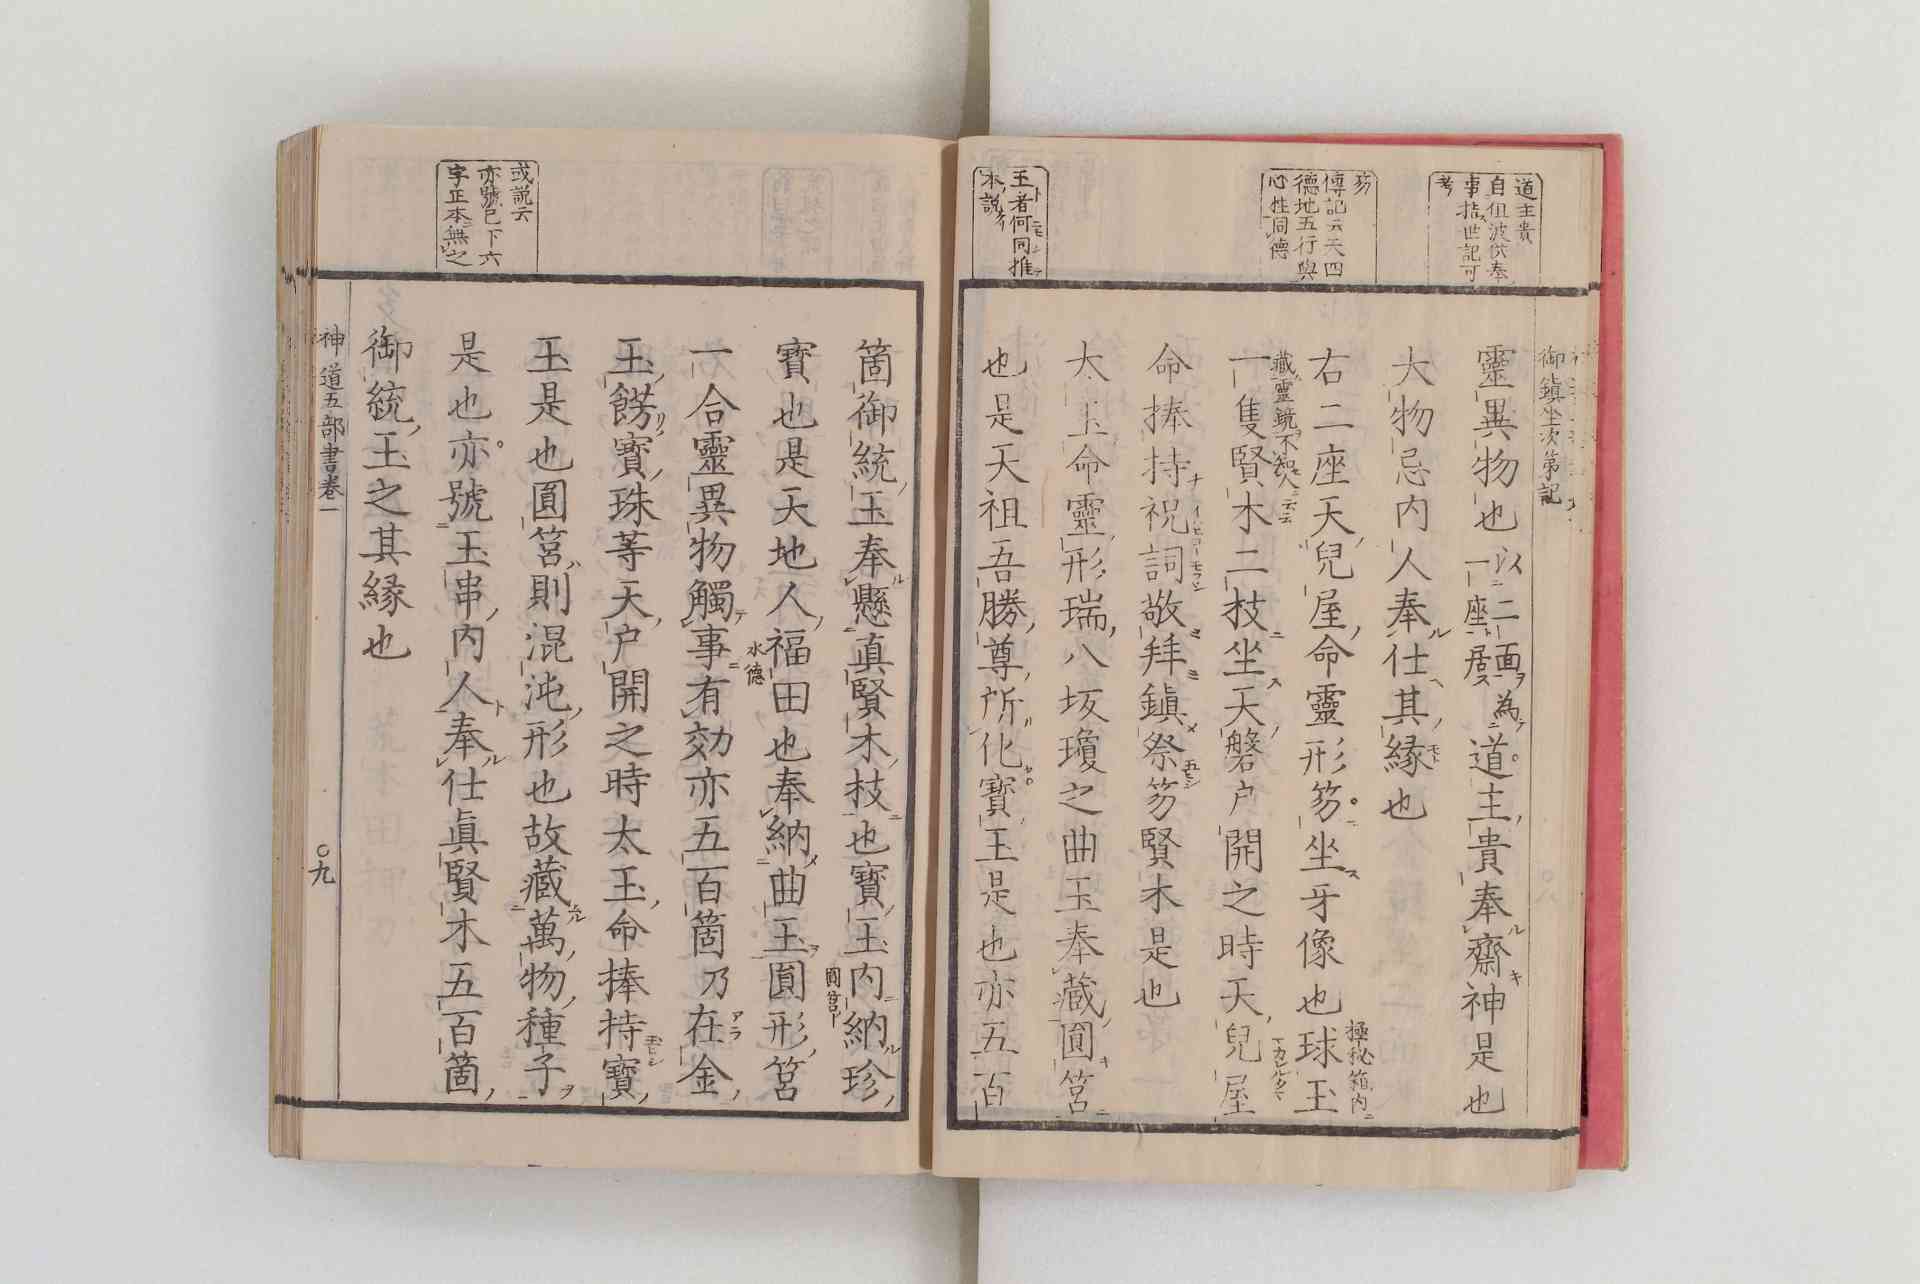 道主貴
自伹波供奉
事撿世記可
考
笏
傳記云天四
德地五行與
心性同德
王者何同推
本説
御鎮坐次第記
靈異物也以二面為道主貴奉齋神是也
一座居
大物忌内人奉仕其縁也
右二座天兒屋命靈形笏坐牙像也球玉
極秘箱内
藏靈鏡不知人云云
一隻賢木二枝坐天磐戸開之時天兒屋
命捧持祝詞敬拜鎮祭笏賢木是也
太玉命靈形瑞八坂瓊之曲玉奉藏圓筥
也是天祖吾勝尊所化寳玉是也亦五百
箇御統玉奉懸真賢木枝也寳玉内納珍
圓筥
寳也是天地人福田也奉納曲玉圓形筥
水德
一合靈異物觸事有効亦五百箇乃在金
玉餝寳珠等天戸開之時太玉命捧持寳
玉是也圓筥則混沌形也故藏萬物種子
是也亦號玉串内人奉仕眞賢木五百箇
御統玉之其縁也
或説云
亦號已下六
字正本無之
神道五部書巻一
〇九